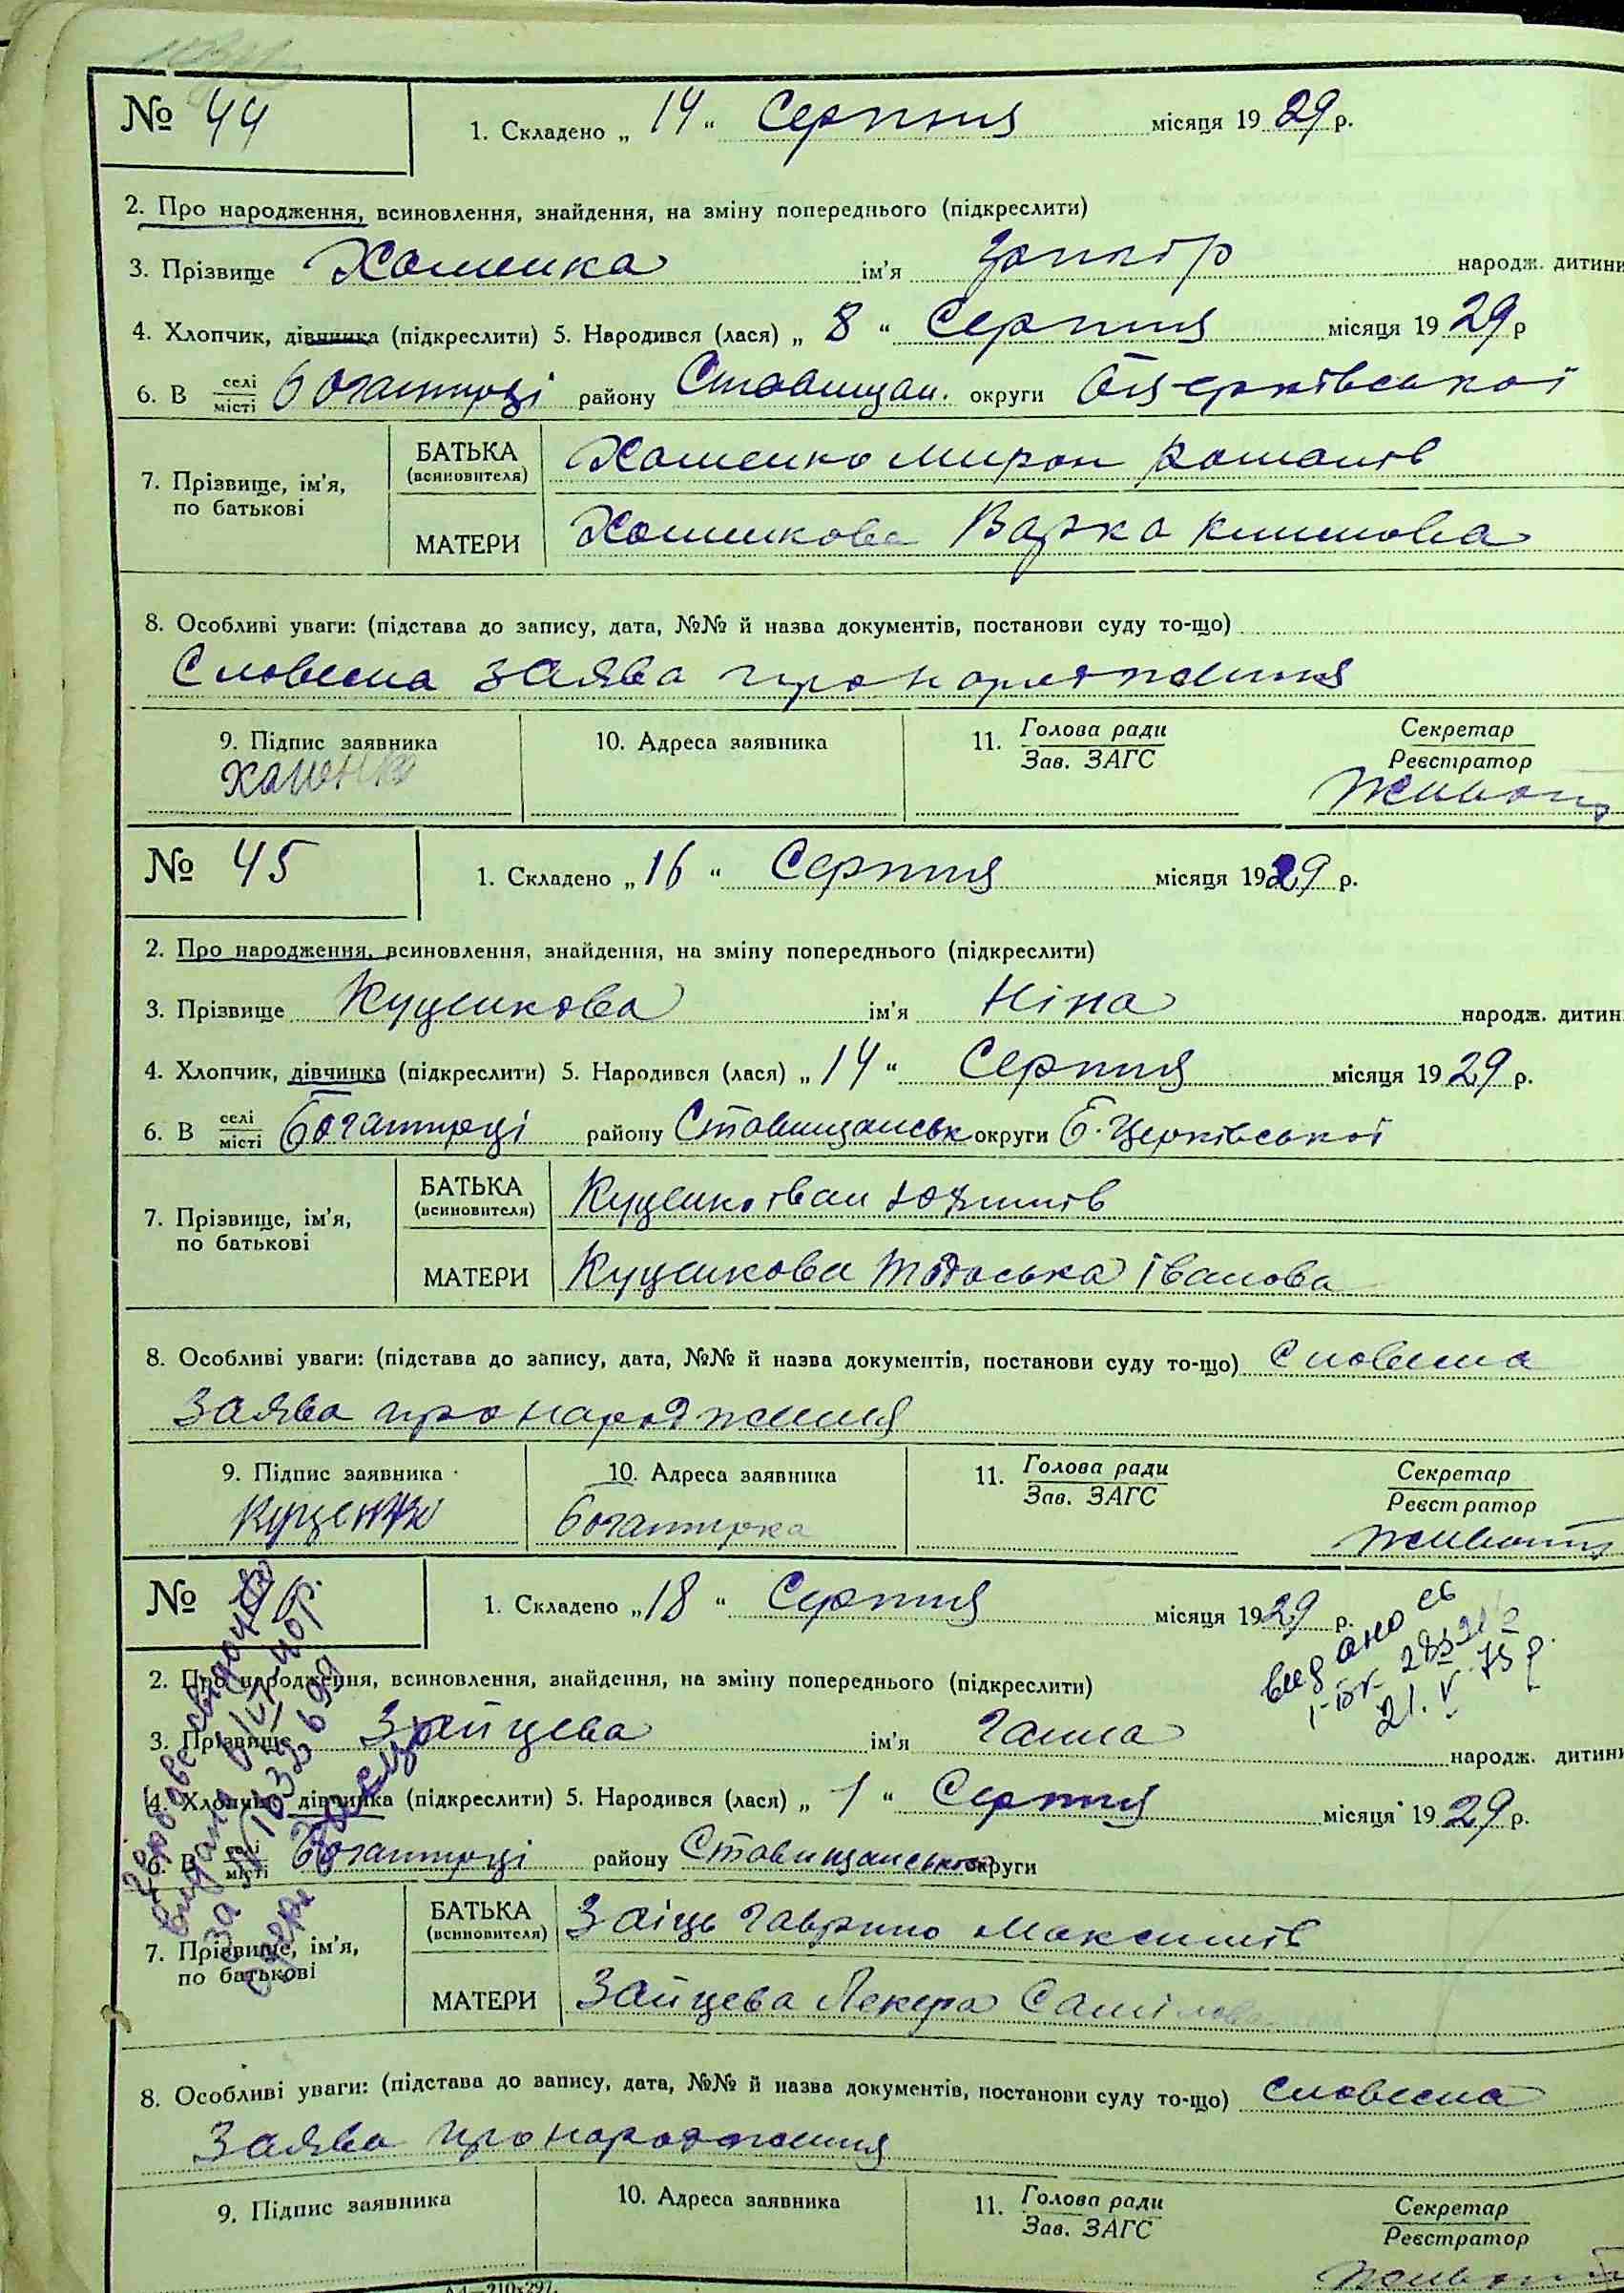 № 44
1. Складено „ 14 “ Серпня місяця 19 29 р.
2. Про народження, всиновлення, знайдення, на зміну попереднього (підкреслити)
3. Прізвище Хоменко ім'я народж. дитини
4. Хлопчик, дівчинка (підкреслити) 5. Народився (лася) „ 8 “ Серпня місяця 19 29 р
6. В селі місті Богатирці району Ставищан. округи Білоцерківської
7. Прізвище, ім'я, по батькові
БАТЬКА (всиновителя) Хоменко Мирон Романів
МАТЕРИ Хоменкова Варка Климова
8. Особливі уваги: (підстава до запису, дата, №№ й назва документів, постанови суду то-що)
Словесна заява про народження
9. Підпис заявника 10. Адреса заявника 11. Голова ради Зав. ЗАГС Секретар Реєстратор
Хоменко
№ 45
1. Складено „ 16 “ Серпня місяця 1929 р.
2. Про народження, всиновлення, знайдення, на зміну попереднього (підкреслити)
3. Прізвище Куценкова ім'я Ніна народж. дитин
4. Хлопчик, дівчинка (підкреслити) 5. Народився (лася) „ 14 “ Серпня місяця 19 29 р.
6. В селі місті Богатирці району Ставищанськ округи Б. Церківської
7. Прізвище, ім'я, по батькові
БАТЬКА (всиновителя) Куценко Іван
МАТЕРИ Куценкова Тодоська Іванова
8. Особливі уваги: (підстава до запису, дата, №№ й назва документів, постанови суду то-що) Словесна
заява про народження
9. Підпис заявника 10. Адреса заявника 11. Голова ради Зав. ЗАГС Секретар Реєстратор
Куценко Богатирка
№ 46
1. Складено „ 18 “ Серпня місяця 1929 р.
2. Про народження, всиновлення, знайдення, на зміну попереднього (підкреслити)
видано св
21.V.75 р.
3. Прізвище Зайцева ім'я Ганна народж. дитини
4. Хлопчик, дівчинка (підкреслити) 5. Народився (лася) „ 1 “ Серпня місяця 19 29 р.
6. В селі місті Богатирці району Ставищанської округи
7. Прізвище, ім'я, по батькові
БАТЬКА (всиновителя) Заіць Гаврило Максимів
МАТЕРИ Зайцева Лекера Самілова
8. Особливі уваги: (підстава до запису, дата, №№ й назва документів, постанови суду то-що) Словесна
Заява про народження
9. Підпис заявника 10. Адреса заявника 11. Голова ради Зав. ЗАГС Секретар Реєстратор
А4—210х297.